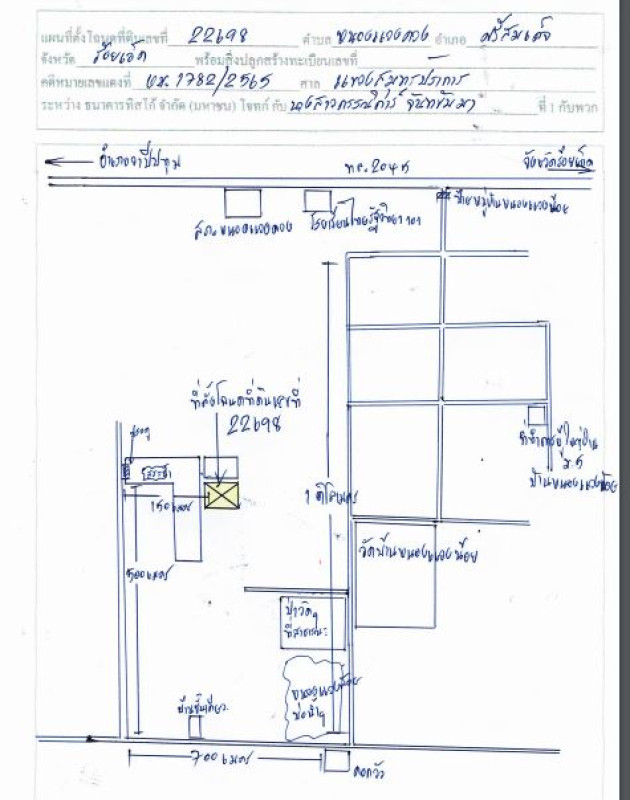 แผนที่ตั้งโฉนดที่ดินเลขที่ 22698 ตำบล หนองแวงควง อำเภอ ศรีสมเด็จ
จังหวัด ร้อยเอ็ด พร้อมสิ่งปลูกสร้างทะเบียนเลขที่
คดีหมายเลขแดงที่ ผบ.1782/2565 ศาล แขวงสมุทรปราการ
ระหว่าง ธนาคารทิสโก้ จำกัด (มหาชน) โจทก์ กับ นางสาวกรรณิการ์ จันทขันมา ที่ 1 กับพวก
อำเภอวาปีปทุม
ทล.2045
จังหวัดร้อยเอ็ด
สภ.หนองแวงควง
โรงเรียนไทยรัฐวิทยา
ป้ายหมู่บ้านหนองแวงน้อย
ที่ตั้งโฉนดที่ดินเลขที่
22698
ประตู
150 เมตร
500 เมตร
1 กิโลเมตร
ที่ทำการผู้ใหญ่บ้าน
ม.5
บ้านหนองแวงน้อย
วัดบ้านหนองแวงน้อย
ที่สาธารณะ
หนองแวงน้อย
บ้านชั้นเดียว
700 เมตร
คอกวัว